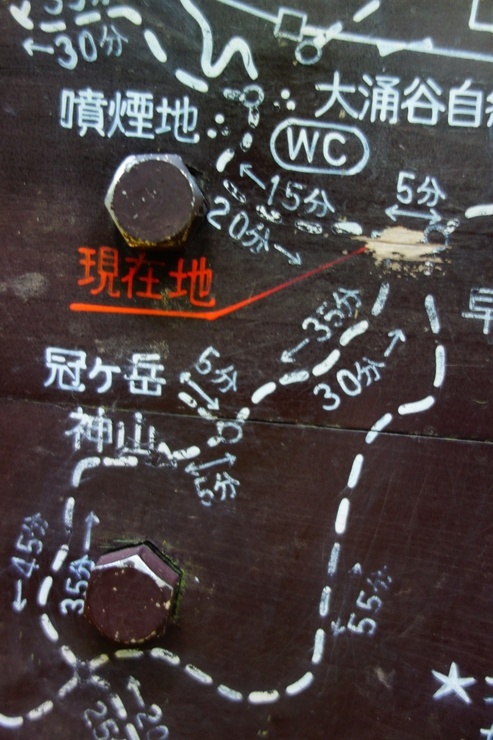 30分
噴煙地
大涌谷自
WC
15分
5分
20分
現在地
35分
30分
冠ヶ岳
5分
神山
5分
45分
35分
55分
早
20
25